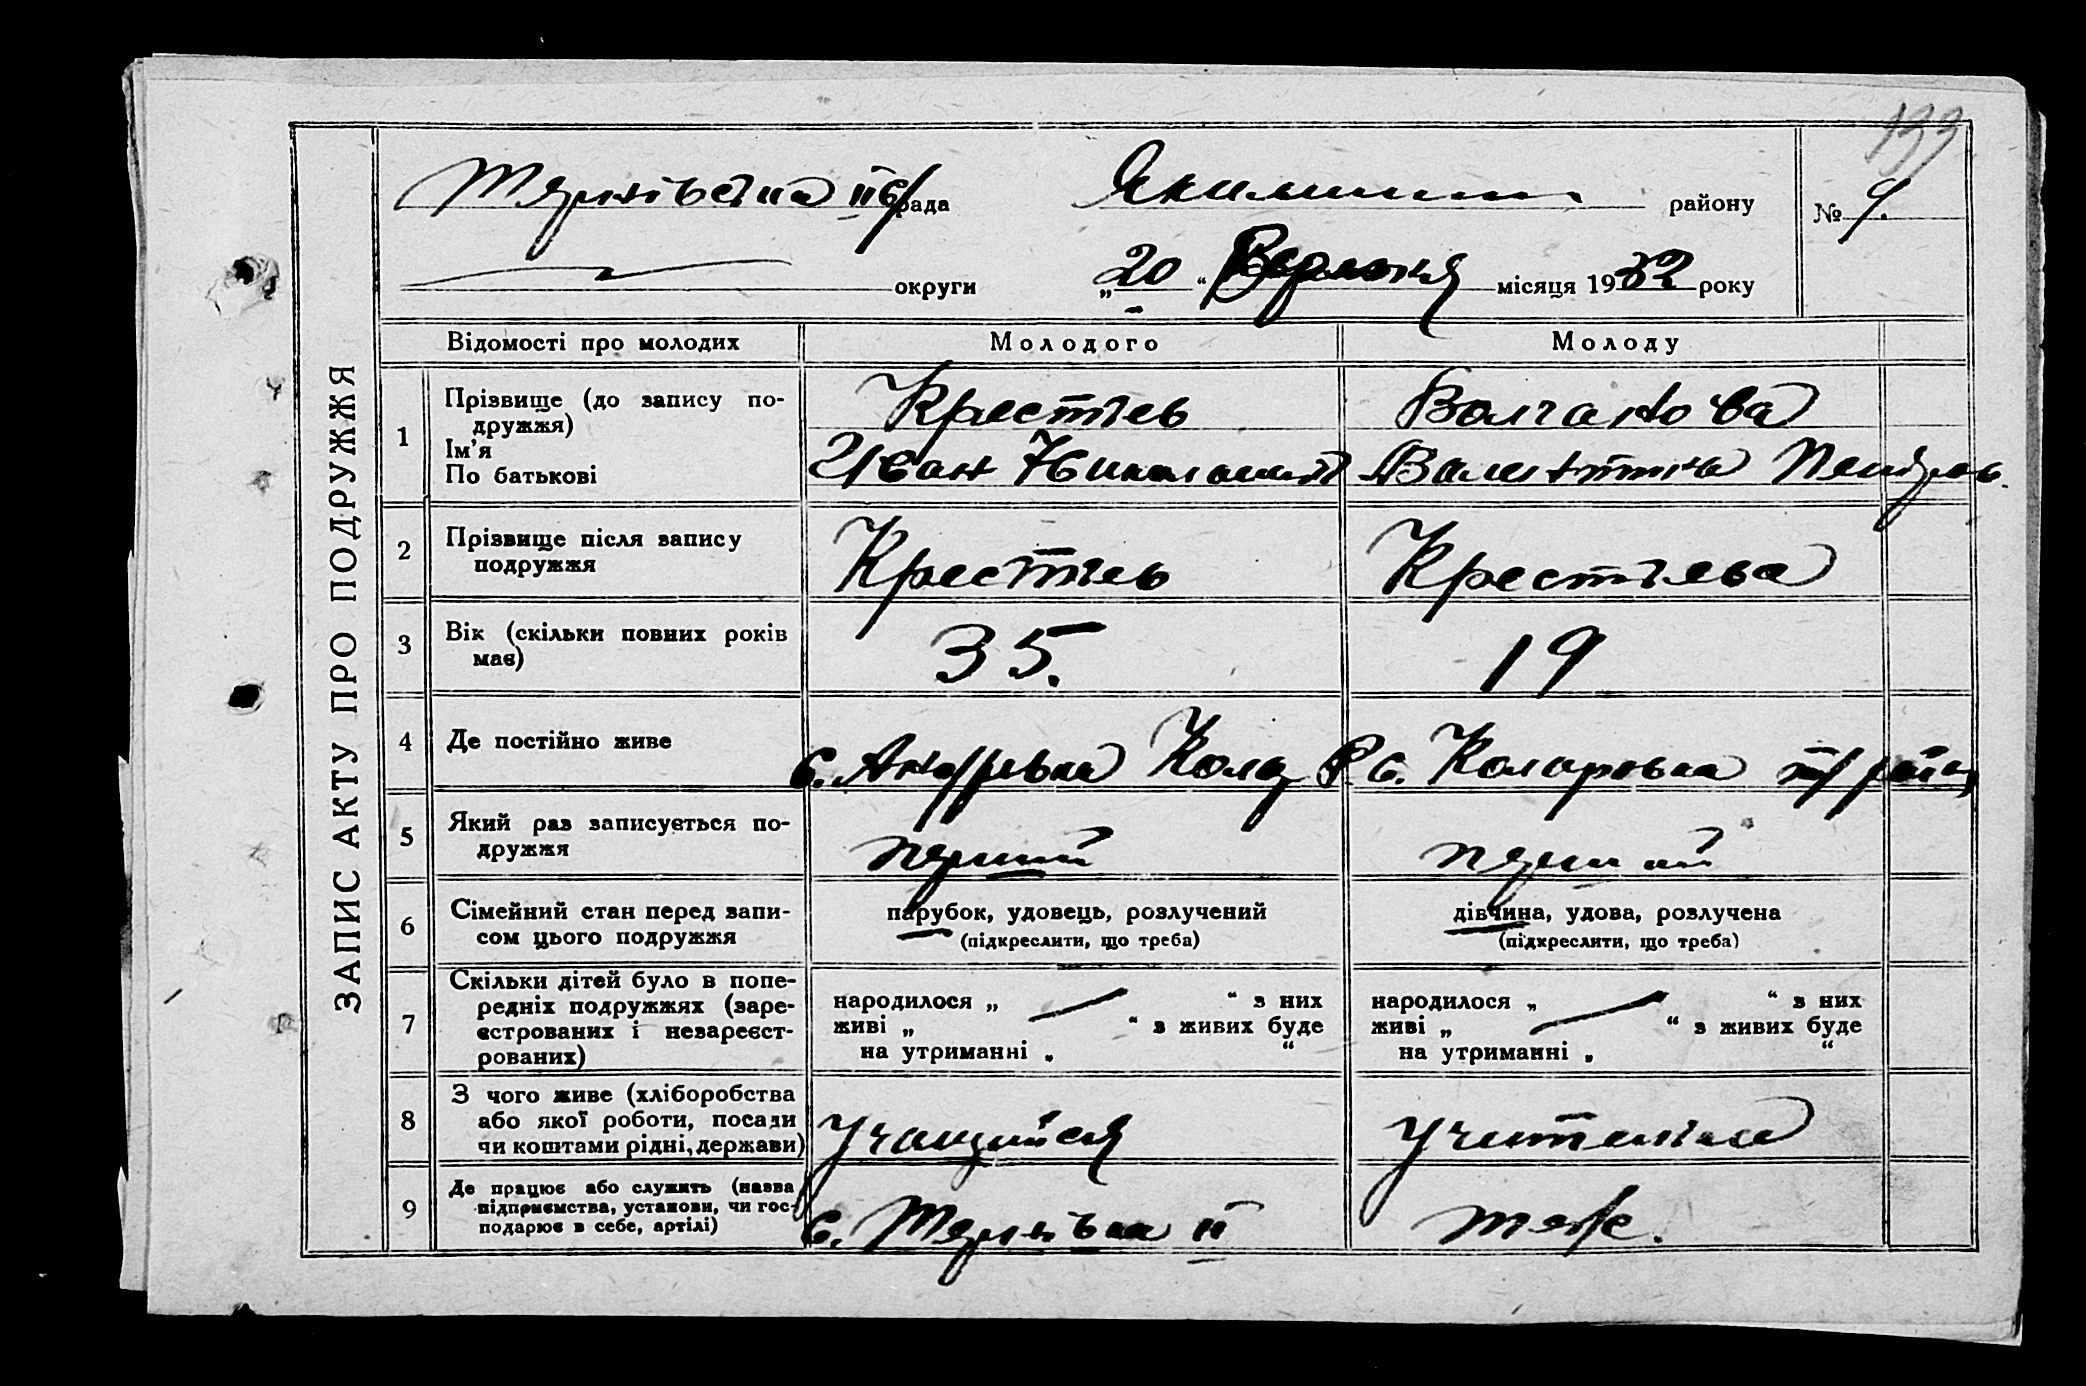 133
Тернівська II с/рада Якимівськ району № 9.
округи „20“ Вересня місяця 1932 року
ЗАПИС АКТУ ПРО ПОДРУЖЖЯ
Відомості про молодих Молодого Молоду
1 Прізвище (до запису по-
дружжя)
Ім'я
По батькові
Крестьев
Иван Николаевич
Волчанова
Валентина Петров.
2 Прізвище після запису
подружжя
Крестьев Крестьева
3 Вік (скільки повних років
має)
35. 19
4 Де постійно живе
с. Андрівка Кола Р. с. Коларовка т/район
5 Який раз записується по-
дружжя
перший перший
6 Сімейний стан перед запи-
сом цього подружжя
парубок, удовець, розлучений
(підкреслити, що треба)
дівчина, удова, розлучена
(підкреслити, що треба)
7 Скільки дітей було в попе-
редніх подружжях (заре-
єстрованих і незареєст-
рованих)
народилося „ “ з них
живі „ “ з живих буде
на утриманні „ “
народилося „ “ з них
живі „ “ з живих буде
на утриманні „ “
8 З чого живе (хліборобства
або якої роботи, посади
чи коштами рідні, держави)
учащийся учителька
9 Де працює або служить (назва
підприємства, установи, чи гос-
подарює в себе, артілі)
с. Тернівка II теж.